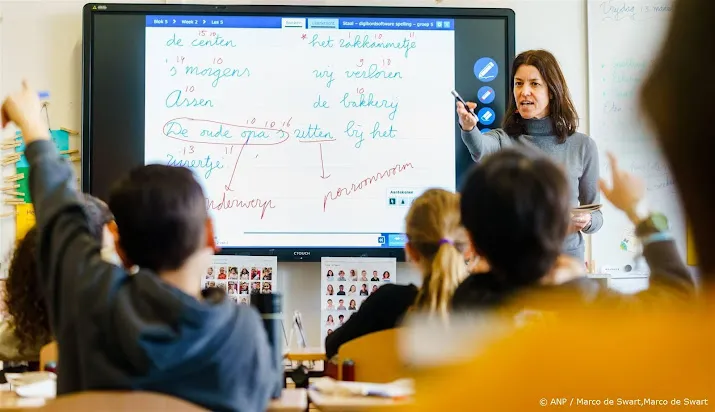 Blok 5 > Week 2 > Les 5
Staal – digibordsoftware spelling – groep 5
15 10
de centen
1 10 11
* het zakkammetje
14 10
's morgens
9 10
wij verloren
10
Assen
10
de bakkerij
10 10 16
De oude opa's zitten bij het
13 11
vuurtje.
onderwerp
persoonsvorm
CTOUCH
Vrijdag 15 maart
© ANP / Marco de Swart,Marco de Swart